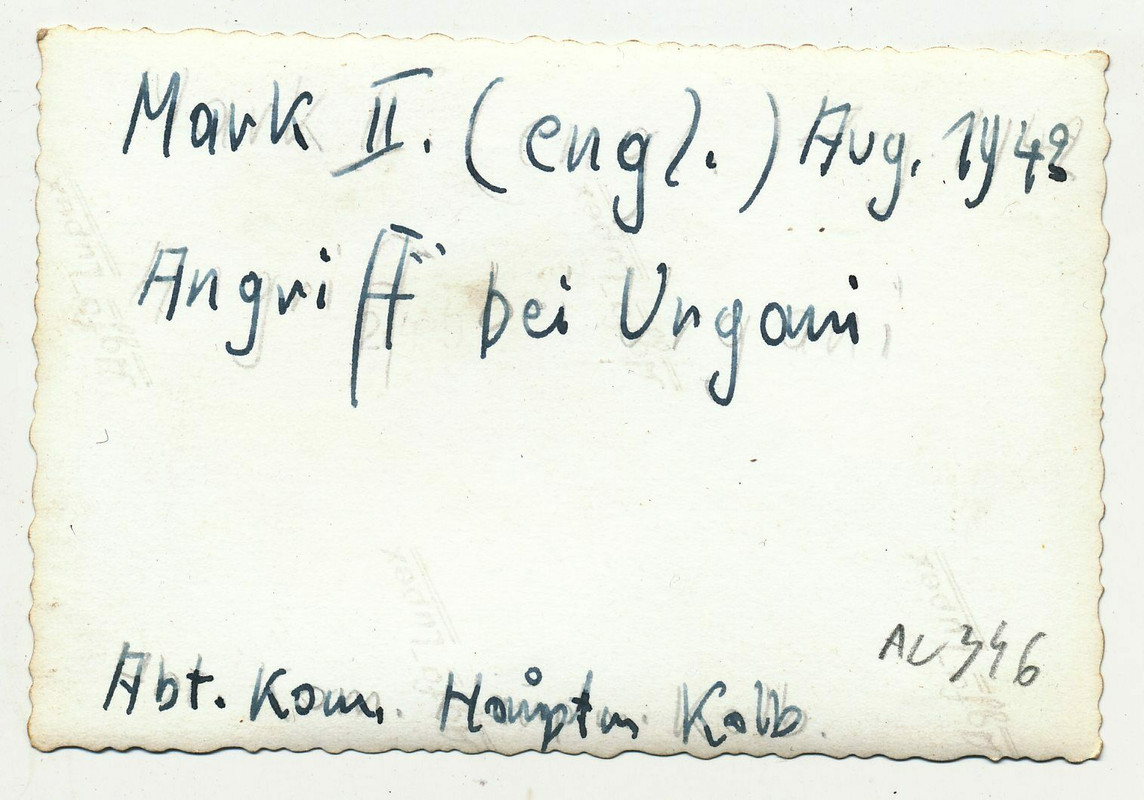 Mark II. (engl.) Aug. 1942
Angriff bei Ungani
AL 346
Abt. Kom. Hauptm. Kolb.